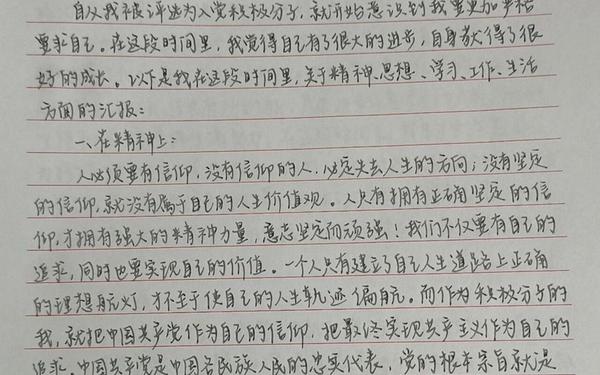 自从我被评选为入党积极分子,就开始意识到我要更加严格
要求自己。在这段时间里,我觉得自己有了很大的进步,自身获得了很
好的成长。以下是我在这段时间里,关于精神、思想、学习、工作、生活
方面的汇报:
一、在精神上:
人必须要有信仰,没有信仰的人,必定失去人生的方向;没有坚定
的信仰,就没有属于自己的人生价值观。人只有拥有正确坚定的信
仰,才拥有强大的精神力量,意志坚定而顽强!我们不仅要有自己的
追求,同时也要实现自己的价值。一个人只有建立了自己人生道路上正确
的理想航灯,才不至于使自己的人生轨迹偏航。而作为积极分子的
我,就把中国共产党作为自己的信仰,把最终实现共产主义作为自己的
追求。中国共产党是中国各民族人民的忠实代表,党的根本宗旨就是